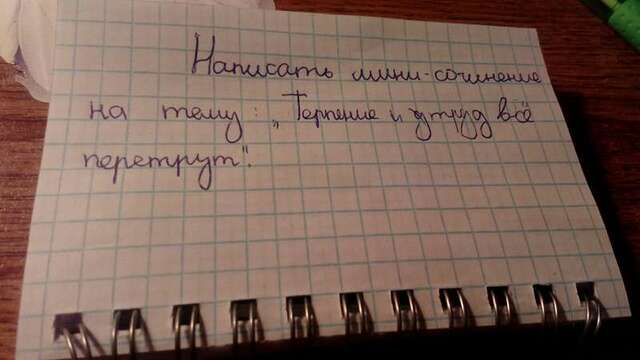 Написать мини-сочинение
на тему: „Терпение и труд всё
перетрут".